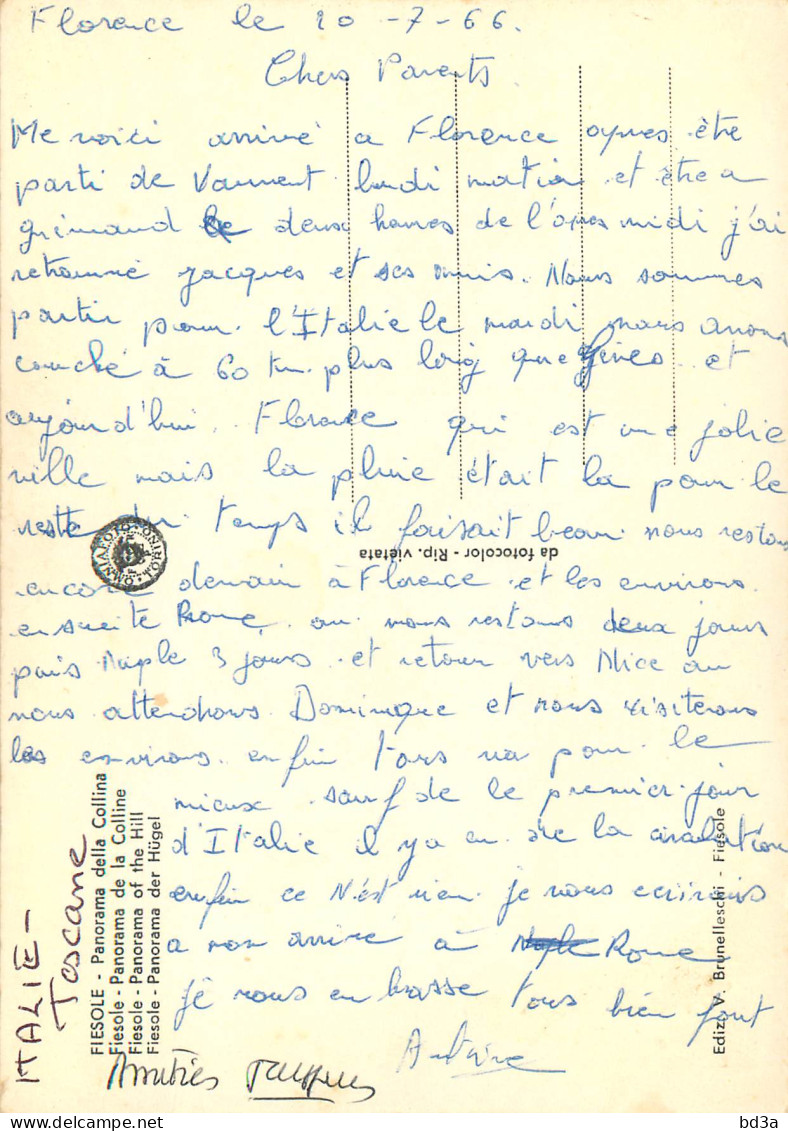 Florence le 20 -7-66.
Chers Parents
Me voici arrivé a Florence apres être
parti de lundi matin et être a
grimaud deux heures de l'apres midi j'ai
retrouvé jacques et ses amis. Nous sommes
partir pour l'Italie le mardi nous avons
couché à 60 km plus loig que et
aujourd'hui. Florence qui est une jolie
ville mais la pluie était la pour le
reste du temps il faisait beau nous restons
encore demain à Florence et les environs
ensuite Rome, ou nous restons deux jours
puis Naple 3 jours et retour vers Nice ou
nous attendrons Dominique et nous visiterons
les environs. enfin tous va pour le
mieux sauf de le premier jour
d'Italie il y a eu de la
enfin ce N'est rien. je vous ecrirais
a mon arrivé à Rome
je vous embrasse tous bien fort
Antoine
Amitiés
ITALIE -
Toscane
FIESOLE - Panorama della Collina
Fiesole - Panorama de la Colline
Fiesole - Panorama of the Hill
Fiesole - Panorama der Hügel
da fotocolor - Rip. vietata
Ediz. V. Brunelleschi - Fiesole
bd3a